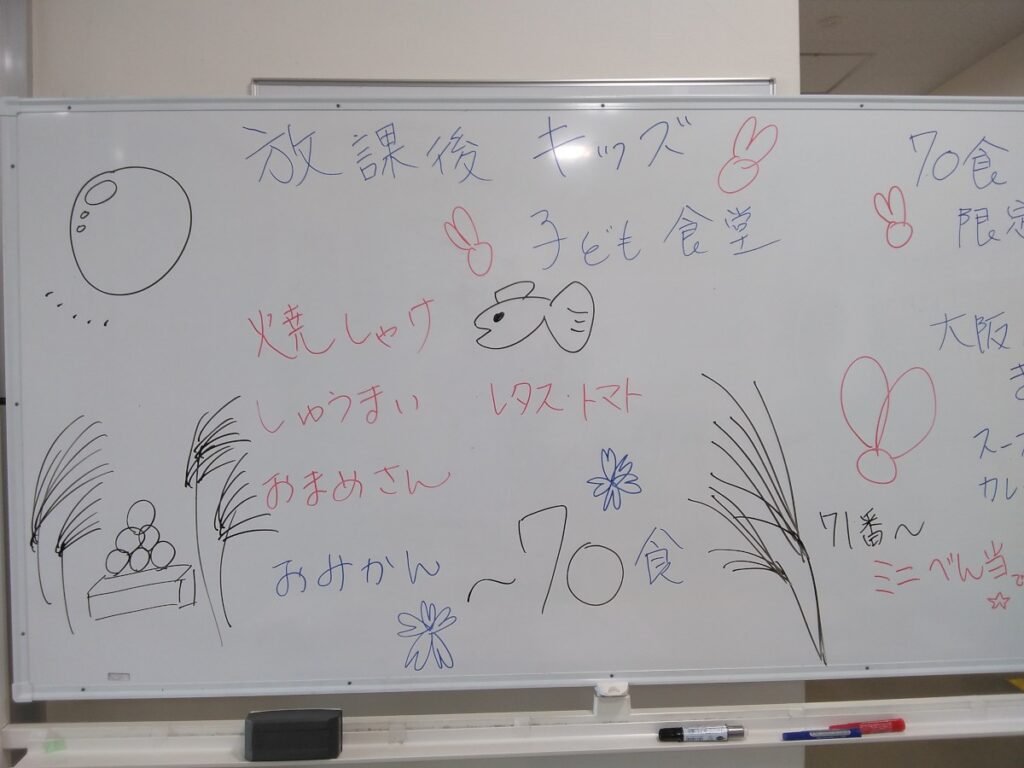 放課後 キッズ
子ども食堂
焼しゃけ
しゅうまい レタス・トマト
おまめさん
おみかん 〜70食
70食
限定
大阪
スー
カレ
71番〜
ミニべん当で